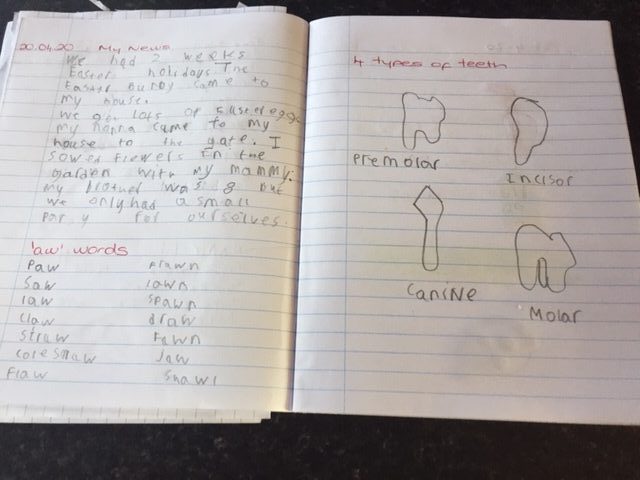 20.04.20 My News
We had 2 weeks
Easter holidays. The
Easter bunny came to
my house.
We got lots of Easter eggs.
my nanna came to my
house to the gate. I
sowed flewers in the
garden with my mammy.
my brother was 8 but
we only had a small
par y for ourselves.
'aw' words
Paw prawn
Saw lawn
law spawn
claw draw
straw Fawn
coleslaw Jaw
Flaw Shawl
4 types of teeth
Premolar Incisor
canine Molar